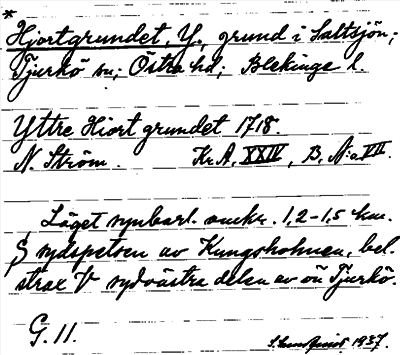 *
Hjortgrundet, Y., grund i Saltsjön;
Tjurkö sn; Östra hd; Blekinge l.
Yttre Hiort grundet 1718.
N. Ström. Kr.A, XXIV, B, N:o VII.
Läget synbarl. omkr. 1,2-1,5 km.
S sydspetsen av Kungsholmen, bel.
strax V sydvästra delen av ön Tjurkö.
G. 11.
1937.